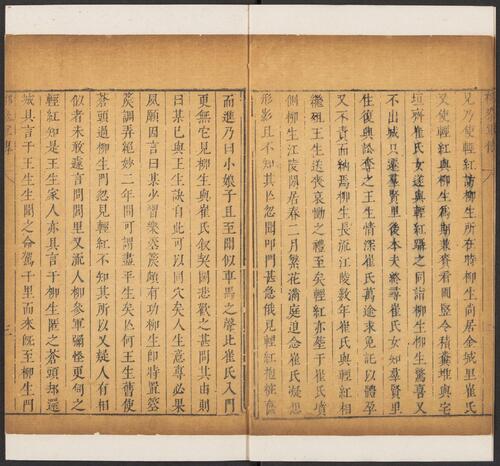 兄乃使輕紅訪柳生所在時柳生尚居金城里崔氏
又使輕紅與柳生爲期兼賚看圃豎令積糞堆與宅
垣齊崔氏女遂與輕紅躡之同詣柳生柳生驚喜又
不出城只遷羣賢里後本夫終尋崔氏女知羣賢里
住復興訟奪之王生情深崔氏萬途求免託以體孕
又不責而納焉柳生長流江陵數年崔氏與輕紅相
繼殂王生送喪哀慟之禮至矣輕紅亦葬于崔氏墳
側柳生江陵閒居春二月繁花滿庭追念崔氏凝想
形影且不知其亡忽聞叩門甚急俄見輕紅抱粧奩
而進乃曰小娘子且至聞似車馬之聲比崔氏入門
更無它見柳生與崔氏叙契闊悲歡之甚問其由則
曰某已與王生訣自此可以同穴矣人生意專必果
夙願因言曰某少習樂箜篌頗有功柳生卽時置箜
篌調弄絕妙二年間可謂盡平生矣亡何王生舊使
蒼頭過柳生門忽見輕紅不知其所以又疑人有相
似者未敢遽言問閭里又流人柳參軍彌怪更伺之
輕紅知是王生家人亦具言于柳生匿之蒼頭却還
城具言于王生生聞之命駕千里而來旣至柳生門
三